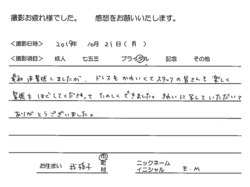 撮影お疲れ様でした。 感想をお願いいたします。
<撮影日時> 2019年 10月 21日 (月)
<撮影項目> 成人 七五三 ブライダル 記念 その他
最初は緊張しましたが、ドレスもかわいくてスタッフの皆さんも楽しく
緊張をほぐしてくださって たのしくできました。きれいに写していただいて
ありがとうございました。
お住まい 我孫子 市 町 村 ニックネーム イニシャル E.M